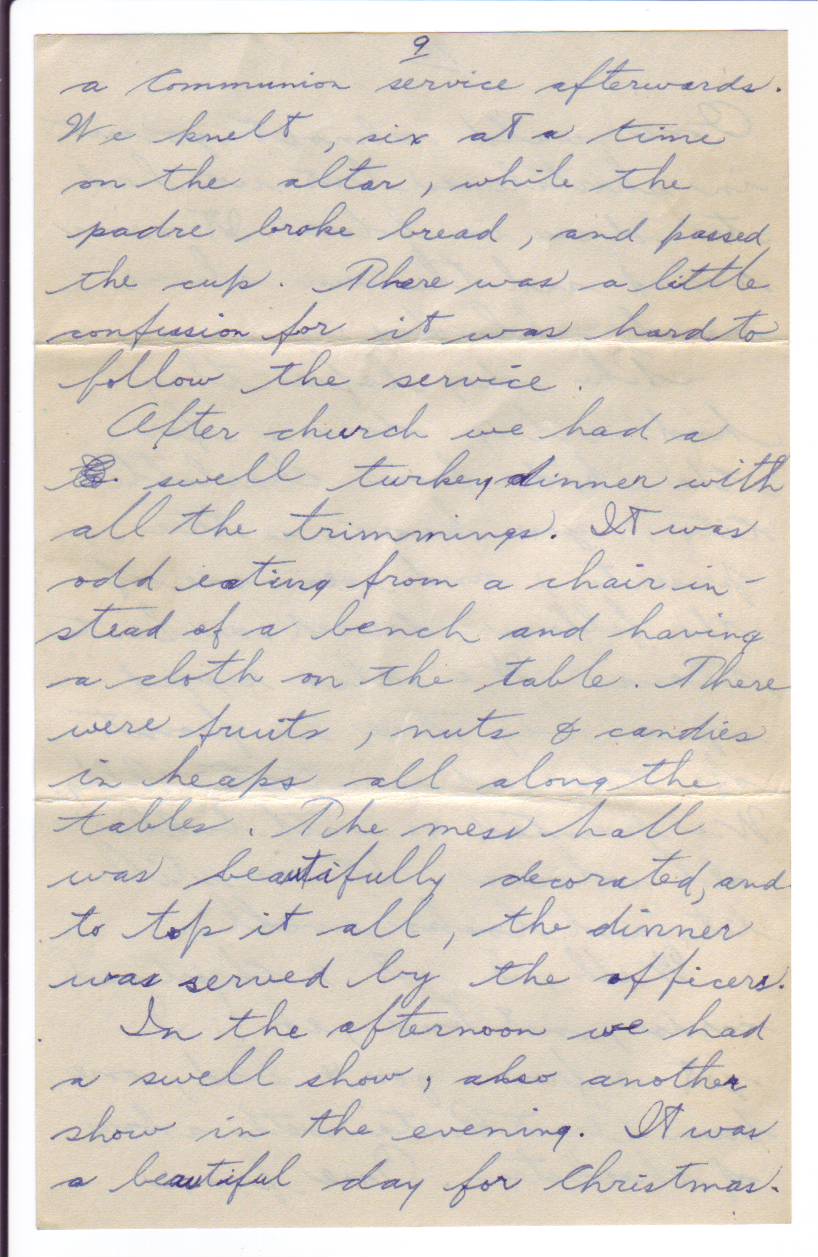 9
a Communion service afterwards.
We knelt, six at a time
on the altar, while the
padre broke bread, and passed
the cup. There was a little
confussion for it was hard to
follow the service.
After church we had a
swell turkey dinner with
all the trimmings. It was
odd eating from a chair in-
stead of a bench and having
a cloth on the table. There
were fruits, nuts & candies
in heaps all along the
tables. The mess hall
was beautifully decorated, and
to top it all, the dinner
was served by the officers.
In the afternoon we had
a swell show, also another
show in the evening. It was
a beautiful day for Christmas.